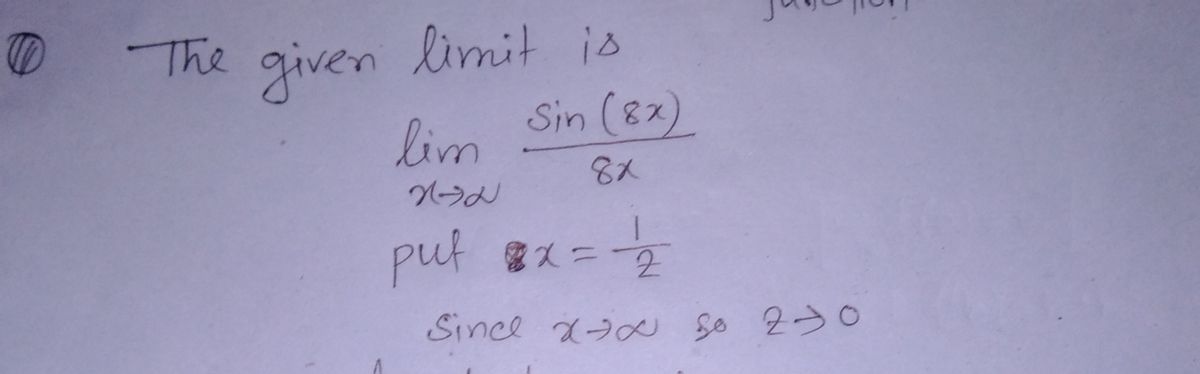 The given limit is
lim sin (8x)
x→∞ 8x
put x = 1/z
Since x→∞ so z→0